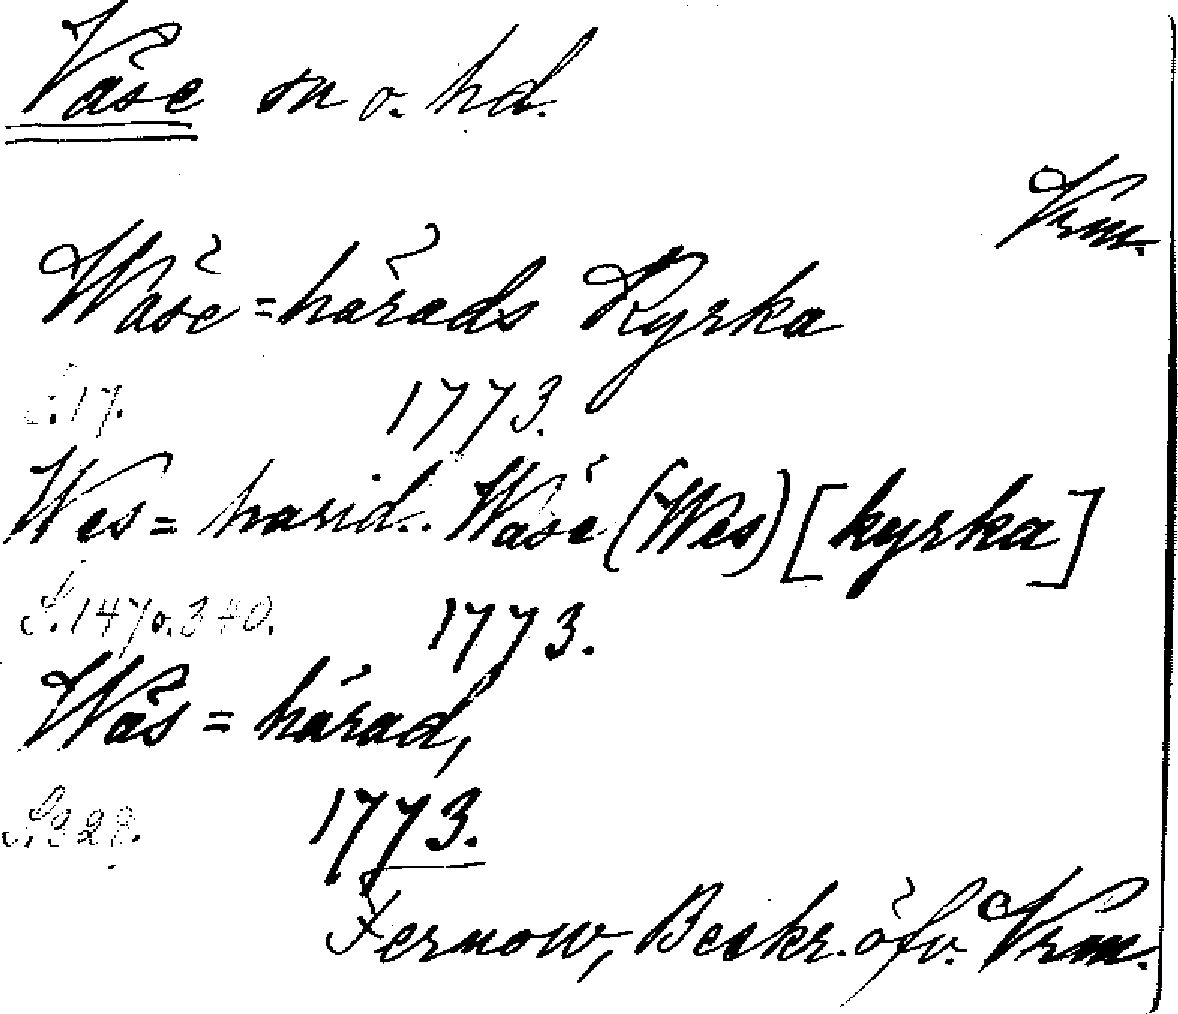 Väse sn o. hd.
Vrm.
Wäse=härads Kyrka
S. 17. 1773.
Wes= harid.. Wäse (Wes) [kyrka]
S. 147 o. 340. 1773.
Wäs=härad,
S. 328. 1773.
Fernow, Beskr. öfv. Vrm.